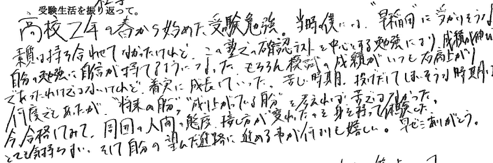 受験生活を振り返って。
高校2年の春から始めた受験勉強。当時の僕には"早稲田"に受かりそうな
素質は持ち合わせてなかったけれど、この塾での確認テストを中心とする勉強により、成績が伸び
自分の勉強に自信が持てるようになった。もちろん模試の成績がいつも右肩上がり
であったわけではないけれど、着実に成長していった。苦しい時期、投げだしてしまいそうな時期は
何度もあったが、"将来の自分""成功している自分"を考えれば苦ではなかった。
今、合格してみて、周囲の人間の態度、接し方が変わったのを身を持って体験した。
とても気持ちいい。そして自分の望んだ進路に進める事が何よりも嬉しい。早せにありがとう。